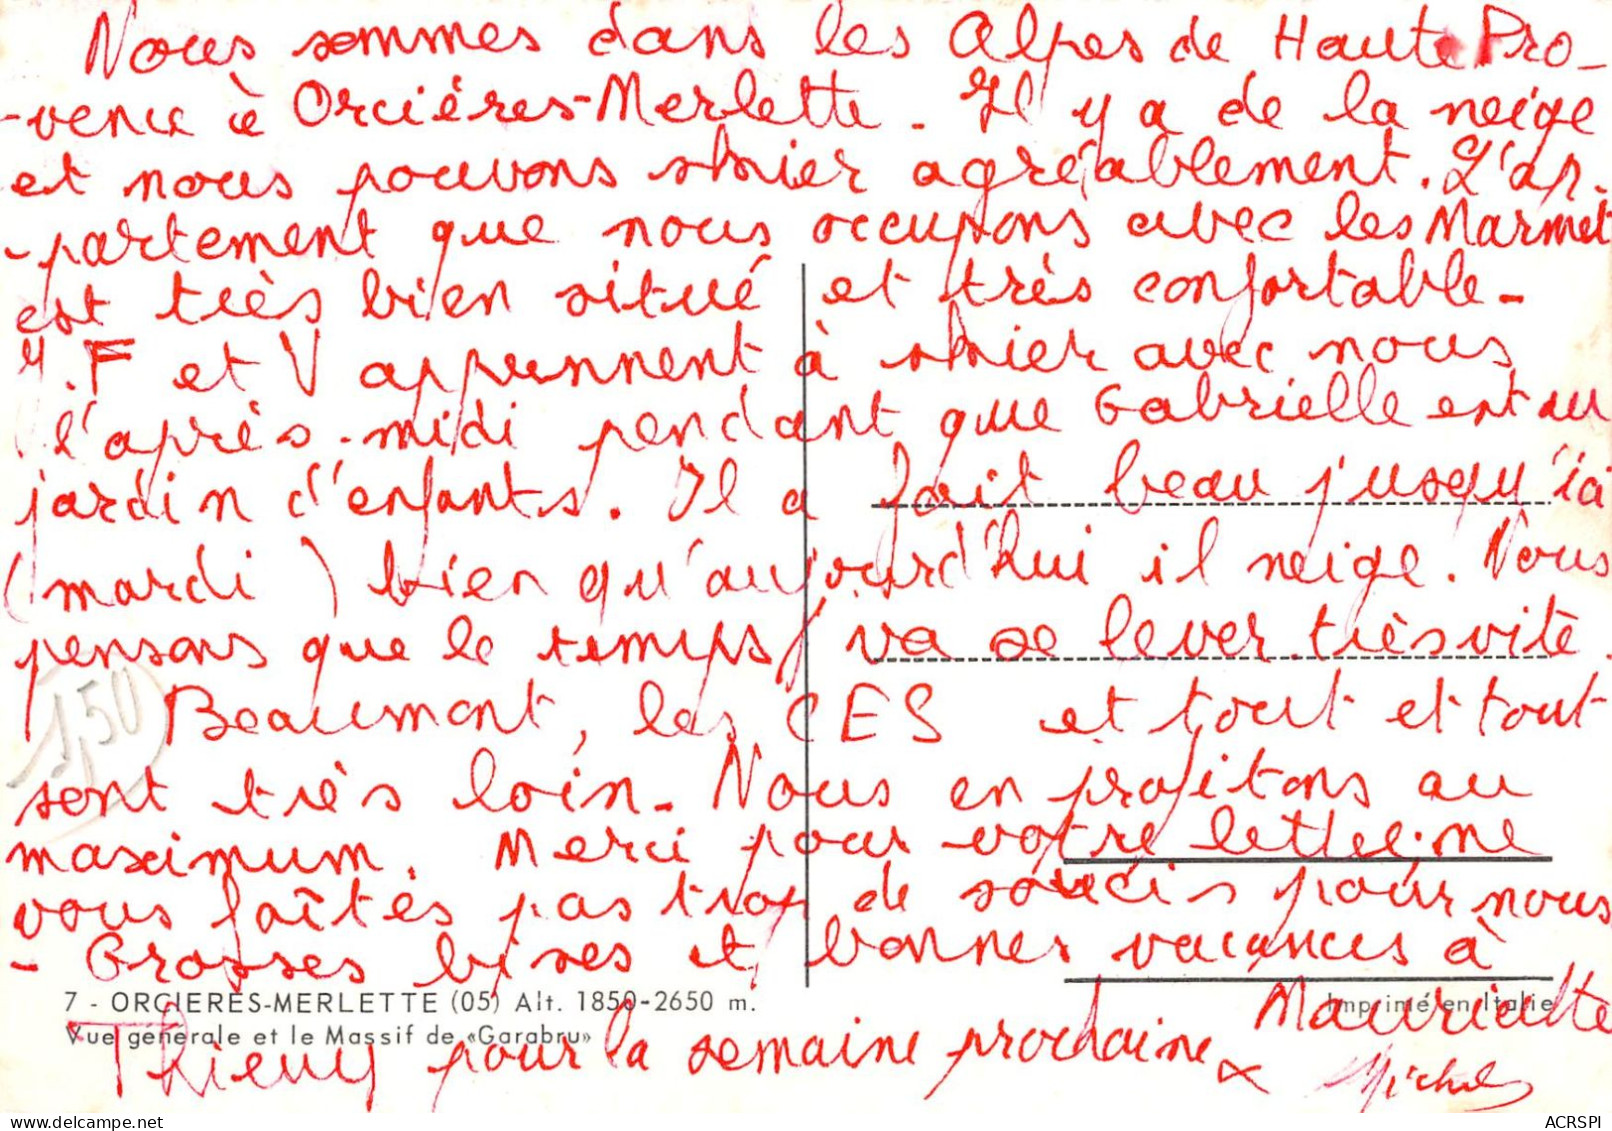 Nous sommes dans les Alpes de Haute Pro-
-vence à Orcières-Merlette. Il y a de la neige
et nous pouvons skier agréablement. L'ap-
-partement que nous occupons avec les Marmet
est très bien situé et très confortable.
F et V apprennent à skier avec nous
l'après-midi pendant que Gabrielle est au
jardin d'enfants. Il a fait beau jusqu'ici
(mardi) bien qu'aujourd'hui il neige. Nous
pensons que le temps va se lever très vite.
Beaumont, les CES et tout et tout
sont très loin. Nous en profitons au
maximum. Merci pour votre lettre. ne
vous faîtes pas trop de soucis pour nous
- Grosses bises et bonnes vacances à
Thierry pour la semaine prochaine
Mauricette
Michel
1,50
7 - ORCIERES-MERLETTE (05) Alt. 1850-2650 m.
Vue générale et le Massif de «Garabru»
Imprimé en Italie
ACRSPI